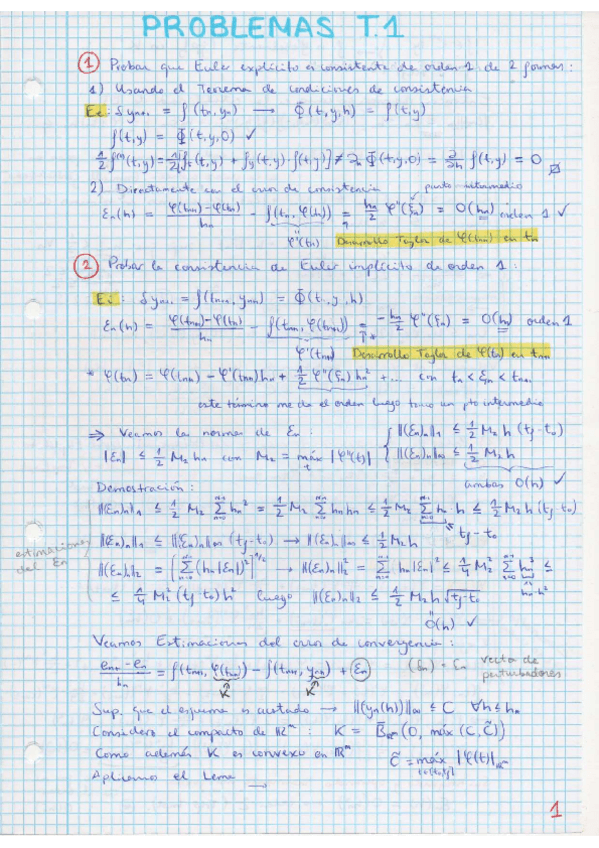 PROBLEMAS T.1
① Probar que Euler explícito es consistente de orden 1 de 2 formas:
1) Usando el Teorema de condiciones de consistencia
EE: δyn+1 = f(tn, yn) → Φ(t,y,h) = f(t,y)
f(t,y) = Φ(t,y,0) ✓
2) Directamente con el error de consistencia punto intermedio
εn(h) = (φ(tn+1)-φ(tn))/hn - f(tn, φ(tn)) = hn/2 φ''(ξn) = O(hn) orden 1 ✓
φ'(tn) Desarrollo Taylor de φ(tn+1) en tn
② Probar la consistencia de Euler implícito de orden 1:
Ei: δyn+1 = f(tn+1, yn+1) = Φ(t,y,h)
εn(h) = (φ(tn+1)-φ(tn))/hn - f(tn+1, φ(tn+1)) = -hn/2 φ''(ξn) = O(hn) orden 1
φ'(tn+1) Desarrollo Taylor de φ(tn) en tn+1
* φ(tn) = φ(tn+1) - φ'(tn+1)hn + 1/2 φ''(ξn)hn² + ... con tn < ξn < tn+1
este término me da el orden luego tomo un pto intermedio
⇒ Veamos la norma de εn:
|εn| ≤ 1/2 M2 hn con M2 = máx |φ''(t)|
‖(εn)n‖1 ≤ 1/2 M2 h (tf-t0)
‖(εn)n‖∞ ≤ 1/2 M2 h
ambas O(h) ✓
Demostración:
‖(εn)n‖1 ≤ 1/2 M2 Σ hn² = 1/2 M2 Σ hn hn ≤ 1/2 M2 Σ hn h ≤ 1/2 M2 h (tf-t0)
tf-t0
estimaciones del εn
‖(εn)n‖1 ≤ ‖(εn)n‖∞ (tf-t0) → ‖(εn)n‖∞ ≤ 1/2 M2 h
‖(εn)n‖2 = [Σ (hn|εn|²)]^1/2 → ‖(εn)n‖2² = Σ hn|εn|² ≤ 1/4 M2² Σ hn³ ≤
hn·h²
≤ 1/4 M2² (tf-t0) h² luego ‖(εn)n‖2 ≤ 1/2 M2 h √tf-t0
O(h) ✓
Veamos Estimaciones del error de convergencia:
(en+1-en)/hn = f(tn+1, φ(tn+1)) - f(tn+1, yn+1) + εn (δn) = εn vector de perturbaciones
K K
Sup. que el esquema es acotado → ‖(yn(h))‖∞ ≤ C ∀h ≤ h0
Considero el compacto de ℝᵐ: K = B̄ℝᵐ(0, máx (C, C̃))
Como además K es convexo en ℝᵐ C̃ = máx |φ(t)|ℝᵐ
Aplicamos el Lema →
1